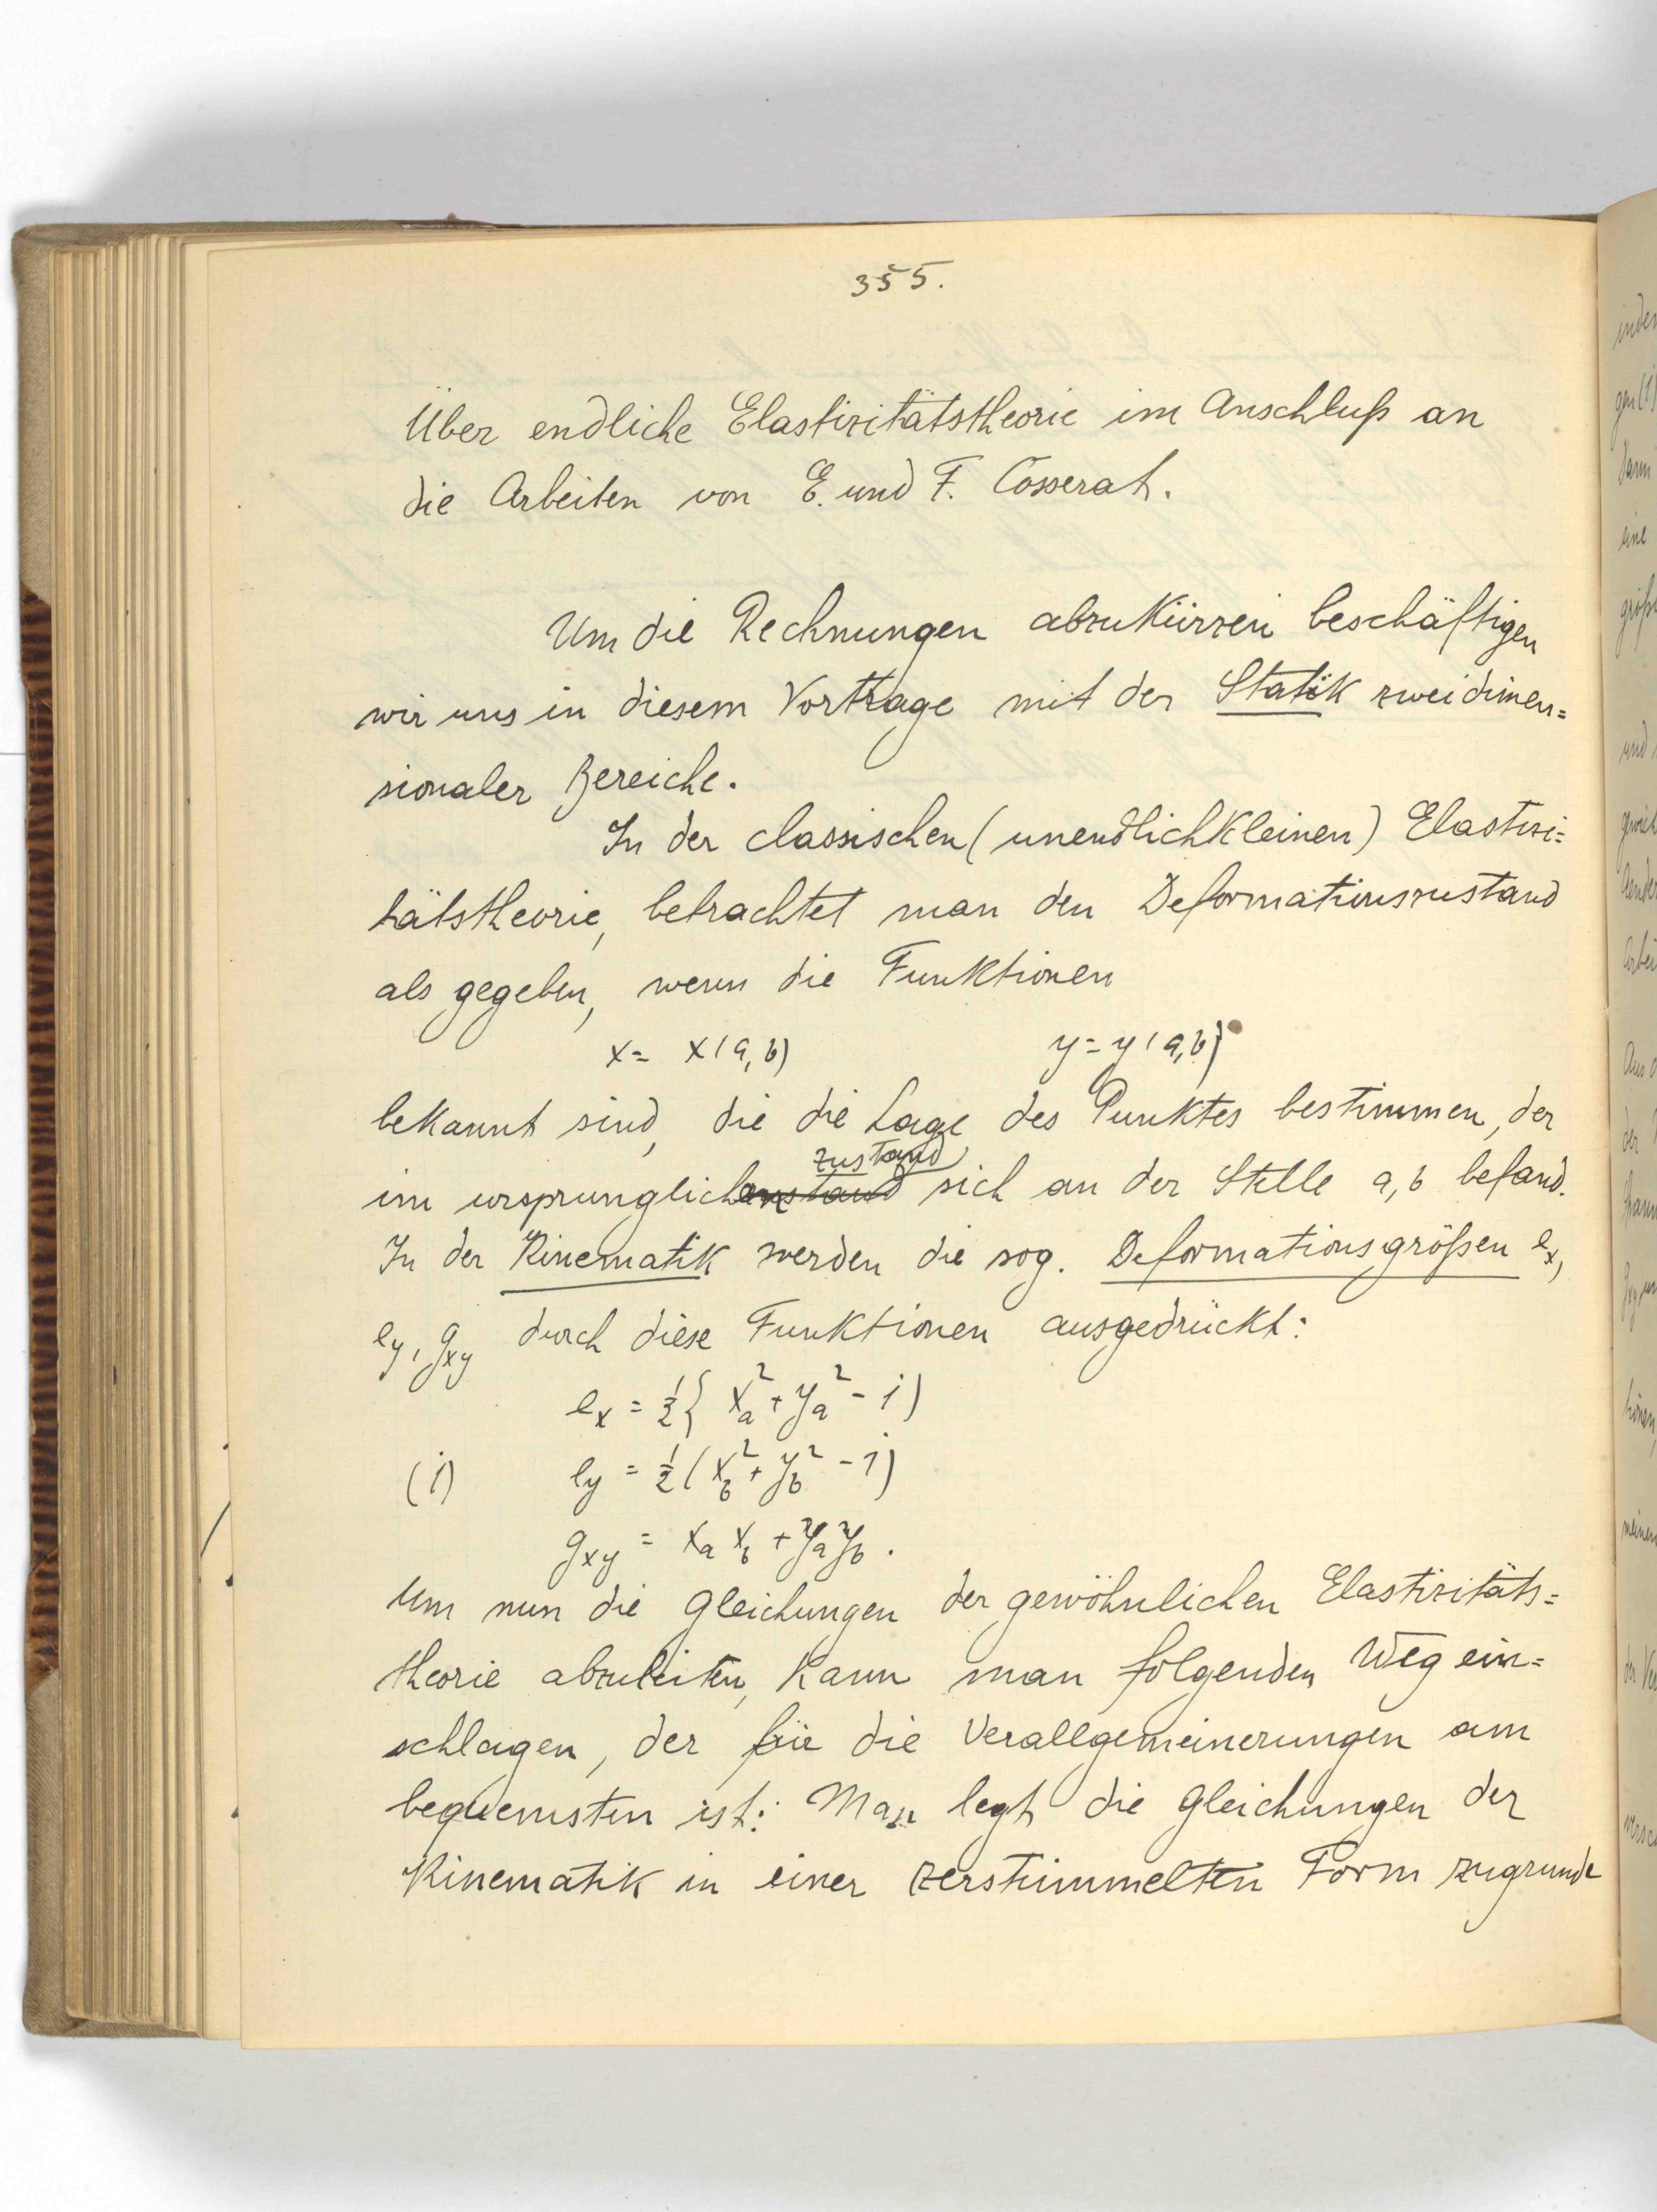 355.
Über endliche Elastizitätstheorie im Anschluß an
die Arbeiten von E. und F. Cosserat.
Um die Rechnungen abzukürzen beschäftigen
wir uns in diesem Vortrage mit der Statik zweidimen=
sionaler Bereiche.
In der classischen (unendlichkleinen) Elastizi=
tätstheorie, betrachtet man den Deformationszustand
als gegeben, wenn die Funktionen
x = x(a, b) y = y(a, b)
bekannt sind, die die Lage des Punktes bestimmen, der
zustand
im ursprunglich sich an der Stelle a, b befand.
In der Kinematik werden die sog. Deformationsgrößen e_x,
e_y, g_xy durch diese Funktionen ausgedrückt:
e_x = ½{ x_a² + y_a² - 1)
(1) e_y = ½( x_b² + y_b² - 1)
g_xy = x_a x_b + y_a y_b.
Um nun die Gleichungen der gewöhnlichen Elastizitäts=
theorie abzuleiten, kann man folgenden Weg ein=
schlagen, der für die Verallgemeinerungen am
bequemsten ist: Man legt die Gleichungen der
Kinematik in einer zerstümmelten Form zugrunde